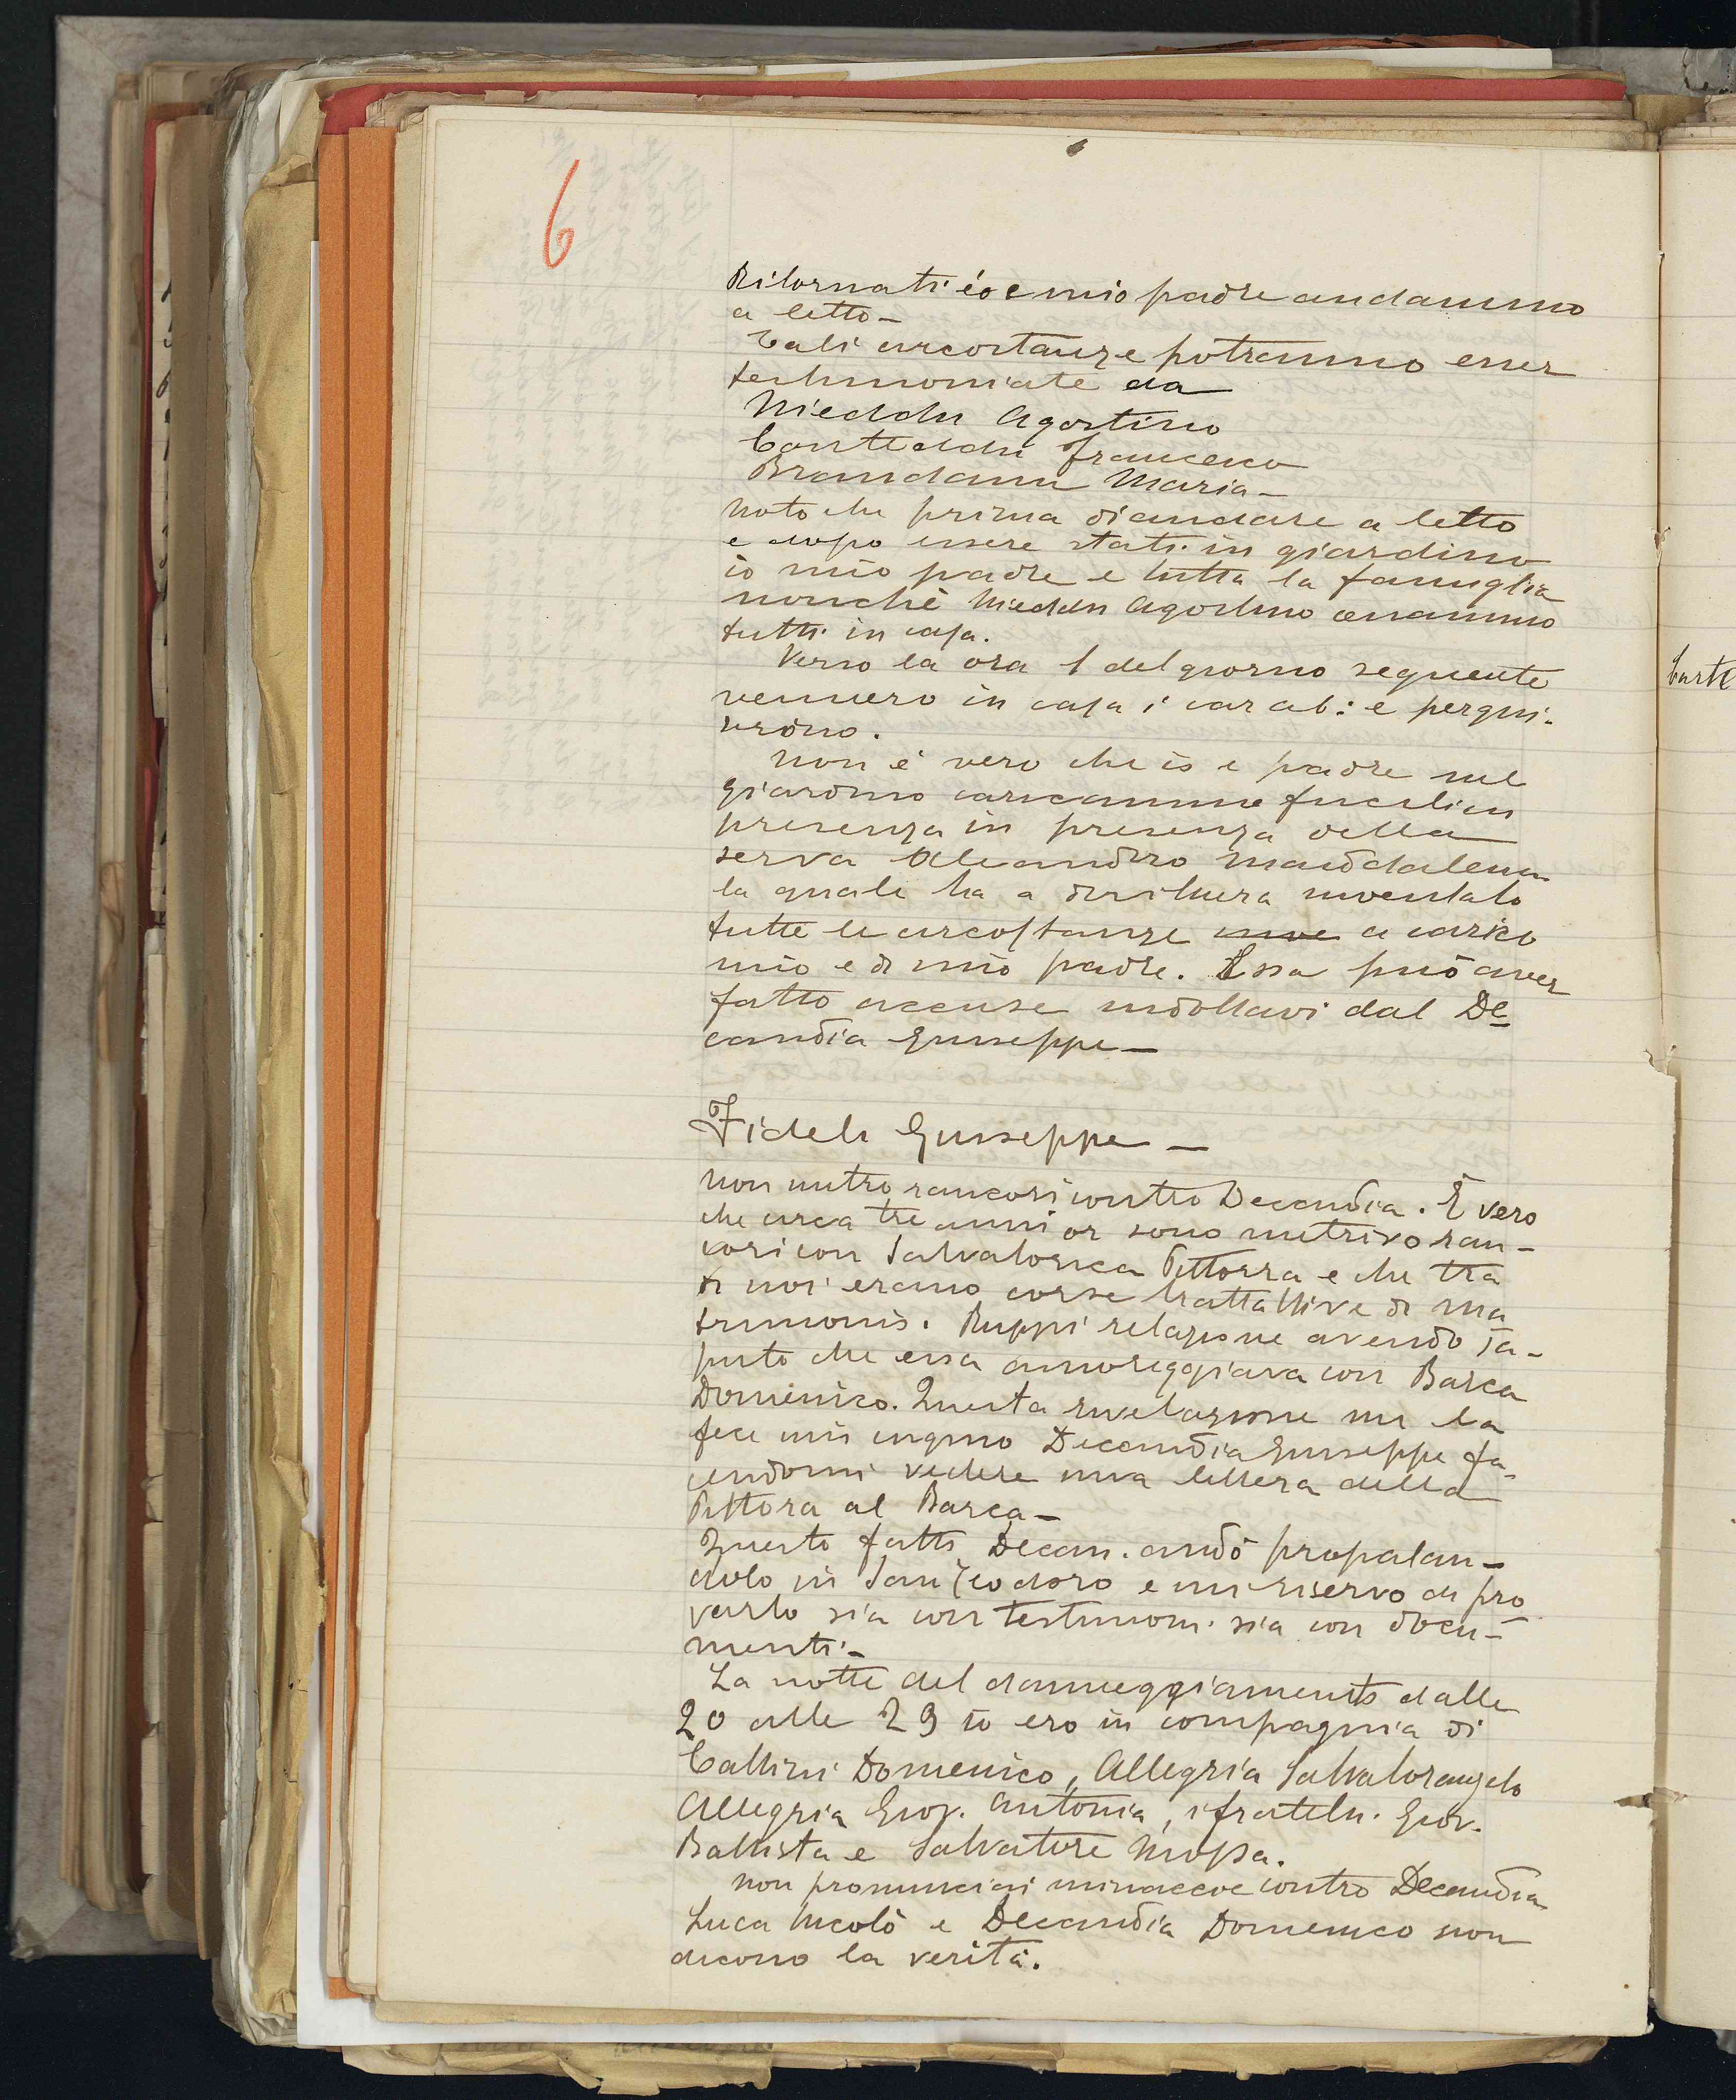 6
Ritornati io e mio padre andammo
a letto -
Tali circostanze potranno esser
testimoniate da
Nieddu Agostino
Conteddu Francesco
Brandanu Maria -
Noto che prima di andare a letto
e dopo essere stati in giardino
io mio padre e tutta la famiglia
nonchè Nieddu Agostino cenammo
tutti in casa.
Verso la ora 1 del giorno seguente
vennero in casa i carab: e perqui-
sirono.
Non è vero che io e padre nel
giardino caricammo fucili in
presenza in presenza della
serva Aleandro Maddalena
la quale ha a dirittura inventato
tutte le circostanze a carico
mio e di mio padre. Essa può aver
fatto accuse indottavi dal De-
candia Giuseppe -
Fideli Giuseppe -
Non nutro rancori contro Decandia. È vero
che circa tre anni or sono nutrivo ran-
cori con Salvatorica Pittorra e che tra
di noi erano corse trattattive di ma
trimonio. Ruppi relazione avendo sa-
puto che essa amoreggiava con Barca
Domenico. Questa rivelazione me la
fece mio cugino Decandia Giuseppe fa-
cendomi vedere una lettera della
Pittora al Barca -
Questo fatto Decan. andò propalan-
dolo in San Teodoro e mi riservo di pro-
varlo sia con testimoni sia con docu-
menti -
La notte del danneggiamento dalle
20 alle 23 io ero in compagnia di
Cattini Domenico, Allegria Salvatorangelo
Allegria Giov. Antonia, i fratelli Giov.
Battista e Salvatore Mossa.
Non pronunciai minaccie contro Decandia
Luca Nicolò e Decandia Domenico non
dicono la verità.